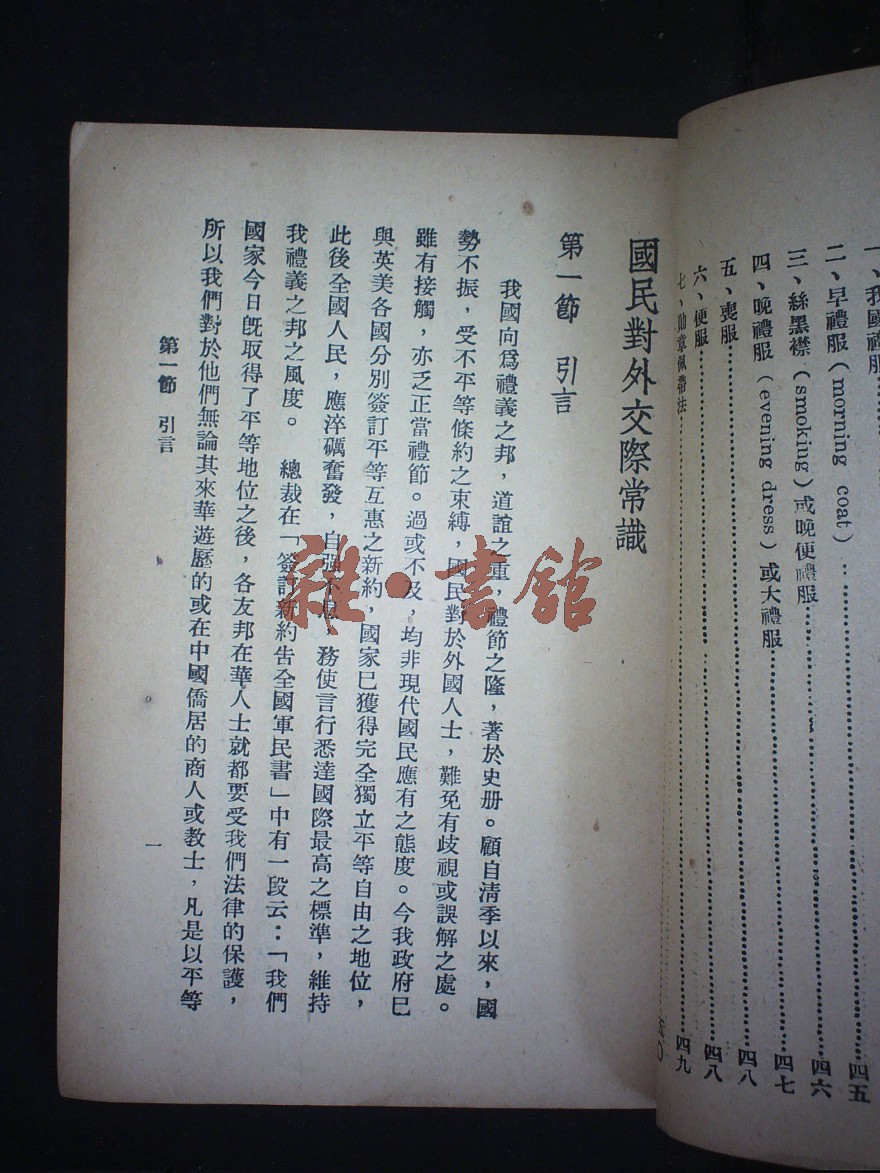 一、我國禮服
二、早禮服（morning coat）……四五
三、絲黑襟（smoking）或晚便禮服……四六
四、晚禮服（evening dress）或大禮服……四七
五、喪服……四八
六、便服……四八
七、勛章佩帶法……四九
國民對外交際常識
第一節　引言
我國向爲禮義之邦，道誼之重，禮節之隆，著於史册。顧自清季以來，國
勢不振，受不平等條約之束縛，國民對於外國人士，難免有歧視或誤解之處。
雖有接觸，亦乏正當禮節。過或不及，均非現代國民應有之態度。今我政府已
與英美各國分別簽訂平等互惠之新約，國家已獲得完全獨立平等自由之地位，
此後全國人民，應淬礪奮發，自强不息，務使言行悉達國際最高之標準，維持
我禮義之邦之風度。　總裁在「簽訂新約告全國軍民書」中有一段云：「我們
國家今日旣取得了平等地位之後，各友邦在華人士就都要受我們法律的保護，
所以我們對於他們無論其來華遊歷的或在中國僑居的商人或教士，凡是以平等
第一節　引言
一
雜·書館